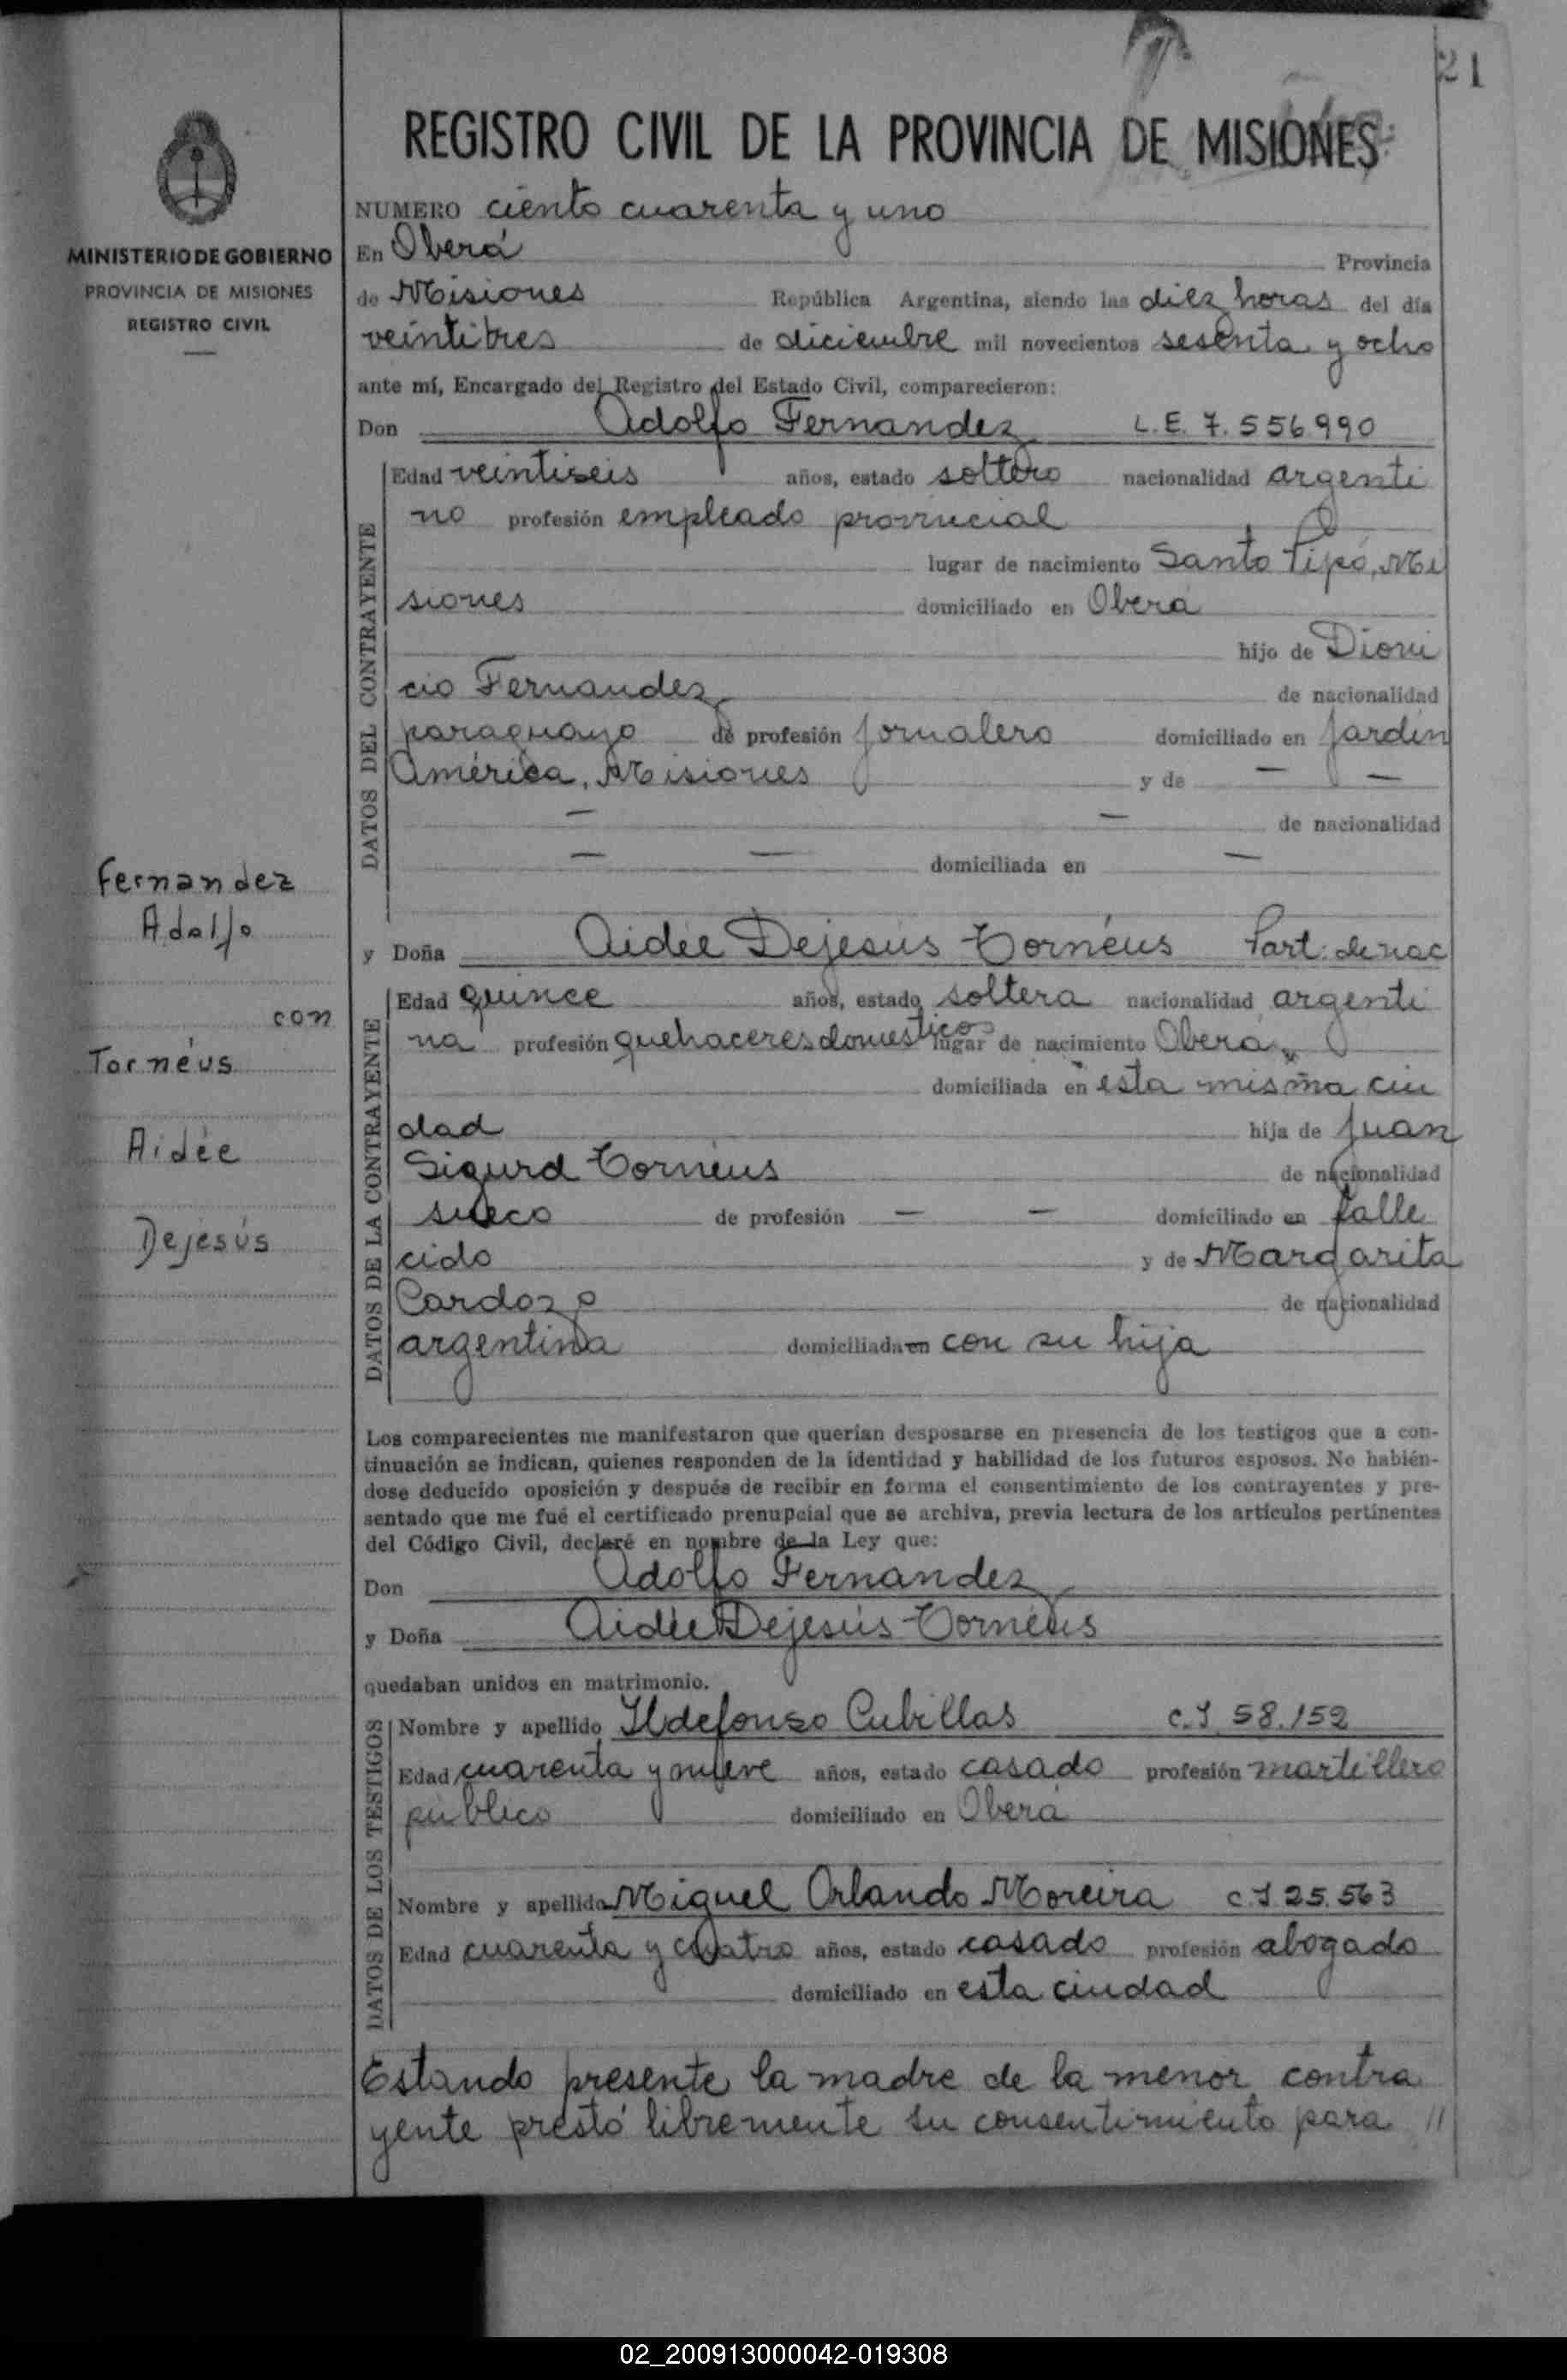 21
REGISTRO CIVIL DE LA PROVINCIA DE MISIONES
MINISTERIO DE GOBIERNO
PROVINCIA DE MISIONES
REGISTRO CIVIL
NUMERO ciento cuarenta y uno
En Oberá Provincia
de Misiones República Argentina, siendo las diez horas del día
veintitres de diciembre mil novecientos sesenta y ocho
ante mí, Encargado del Registro del Estado Civil, comparecieron:
Don Adolfo Fernandez L.E. 7.556.990
DATOS DEL CONTRAYENTE
Edad veintiseis años, estado soltero nacionalidad argenti
no profesión empleado provincial
lugar de nacimiento Santo Pipó, Mi
siones domiciliado en Oberá
hijo de Dioni
cio Fernandez de nacionalidad
paraguayo de profesión jornalero domiciliado en Jardín
América, Misiones y de — —
— — de nacionalidad
— — domiciliada en —
Fernandez
Adolfo
con
Tornéus
Aidée
Dejesús
y Doña Aidée Dejesús Tornéus Part. de nac
DATOS DE LA CONTRAYENTE
Edad quince años, estado soltera nacionalidad argenti
na profesión quehaceres domesticos lugar de nacimiento Oberá
domiciliada en esta misma ciu
dad hija de Juan
Sigurd Tornéus de nacionalidad
sueco de profesión — — domiciliado en falle
cido y de Margarita
Cardozo de nacionalidad
argentina domiciliada en con su hija
Los comparecientes me manifestaron que querían desposarse en presencia de los testigos que a con-
tinuación se indican, quienes responden de la identidad y habilidad de los futuros esposos. No habién-
dose deducido oposición y después de recibir en forma el consentimiento de los contrayentes y pre-
sentado que me fué el certificado prenupcial que se archiva, previa lectura de los artículos pertinentes
del Código Civil, declaré en nombre de la Ley que:
Don Adolfo Fernandez
y Doña Aidée Dejesús Tornéus
quedaban unidos en matrimonio.
DATOS DE LOS TESTIGOS
Nombre y apellido Ildefonso Cubillas C.I 58.152
Edad cuarenta y nueve años, estado casado profesión martillero
público domiciliado en Oberá
Nombre y apellido Miguel Orlando Moreira C.I 25.563
Edad cuarenta y cuatro años, estado casado profesión abogado
domiciliado en esta ciudad
Estando presente la madre de la menor contra
yente prestó libremente su consentimiento para //
02_200913000042-019308